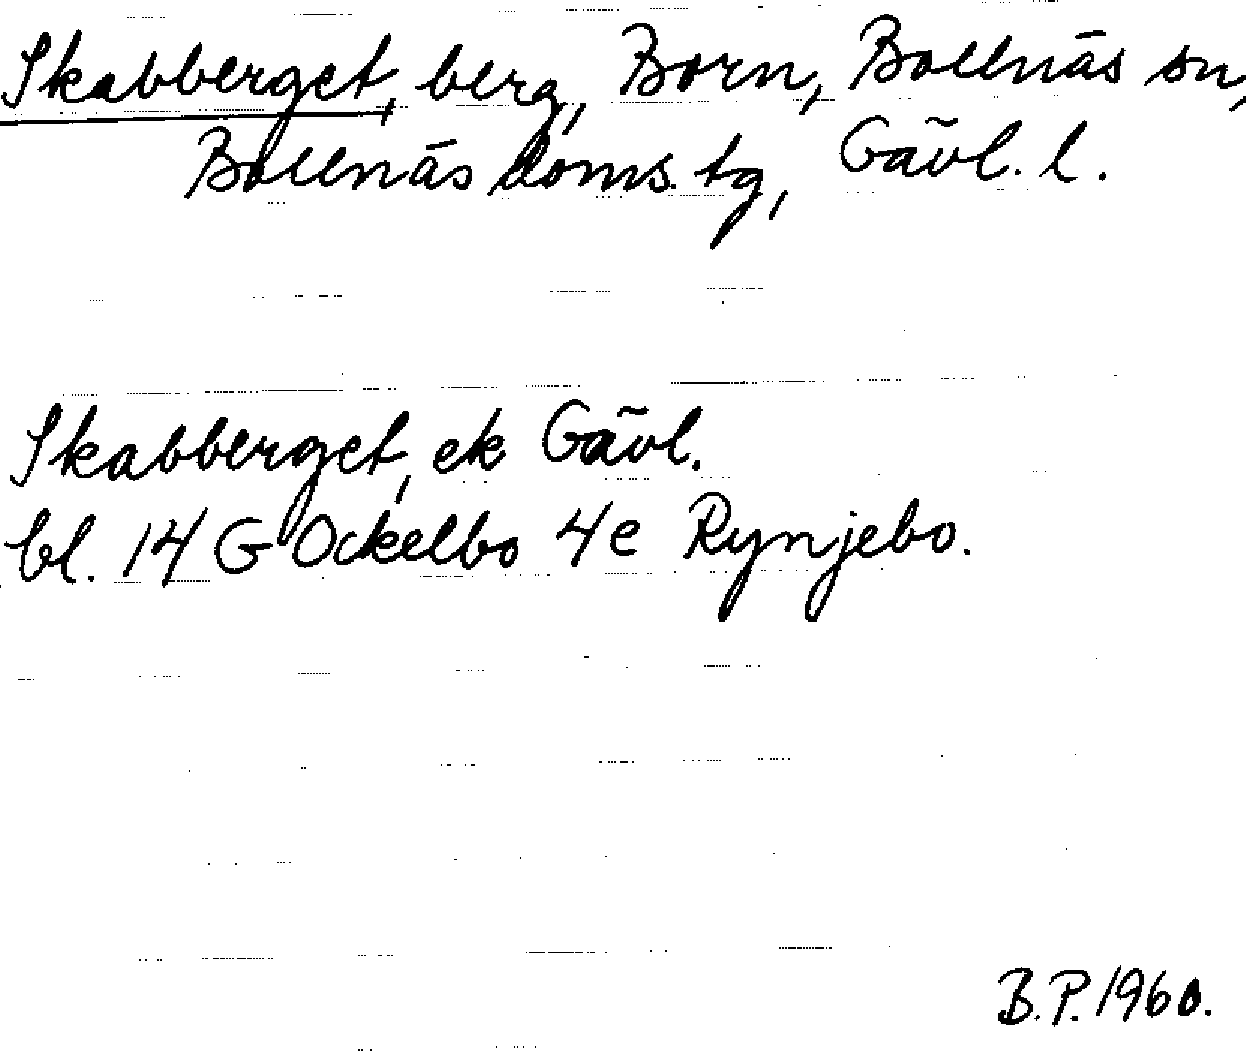 Skabberget, berg, Born, Bollnäs sn,
Bollnäs doms. tg, Gävl. l.
Skabberget, ek Gävl.
bl. 14 G Ockelbo 4e Rynjebo.
B.P. 1960.